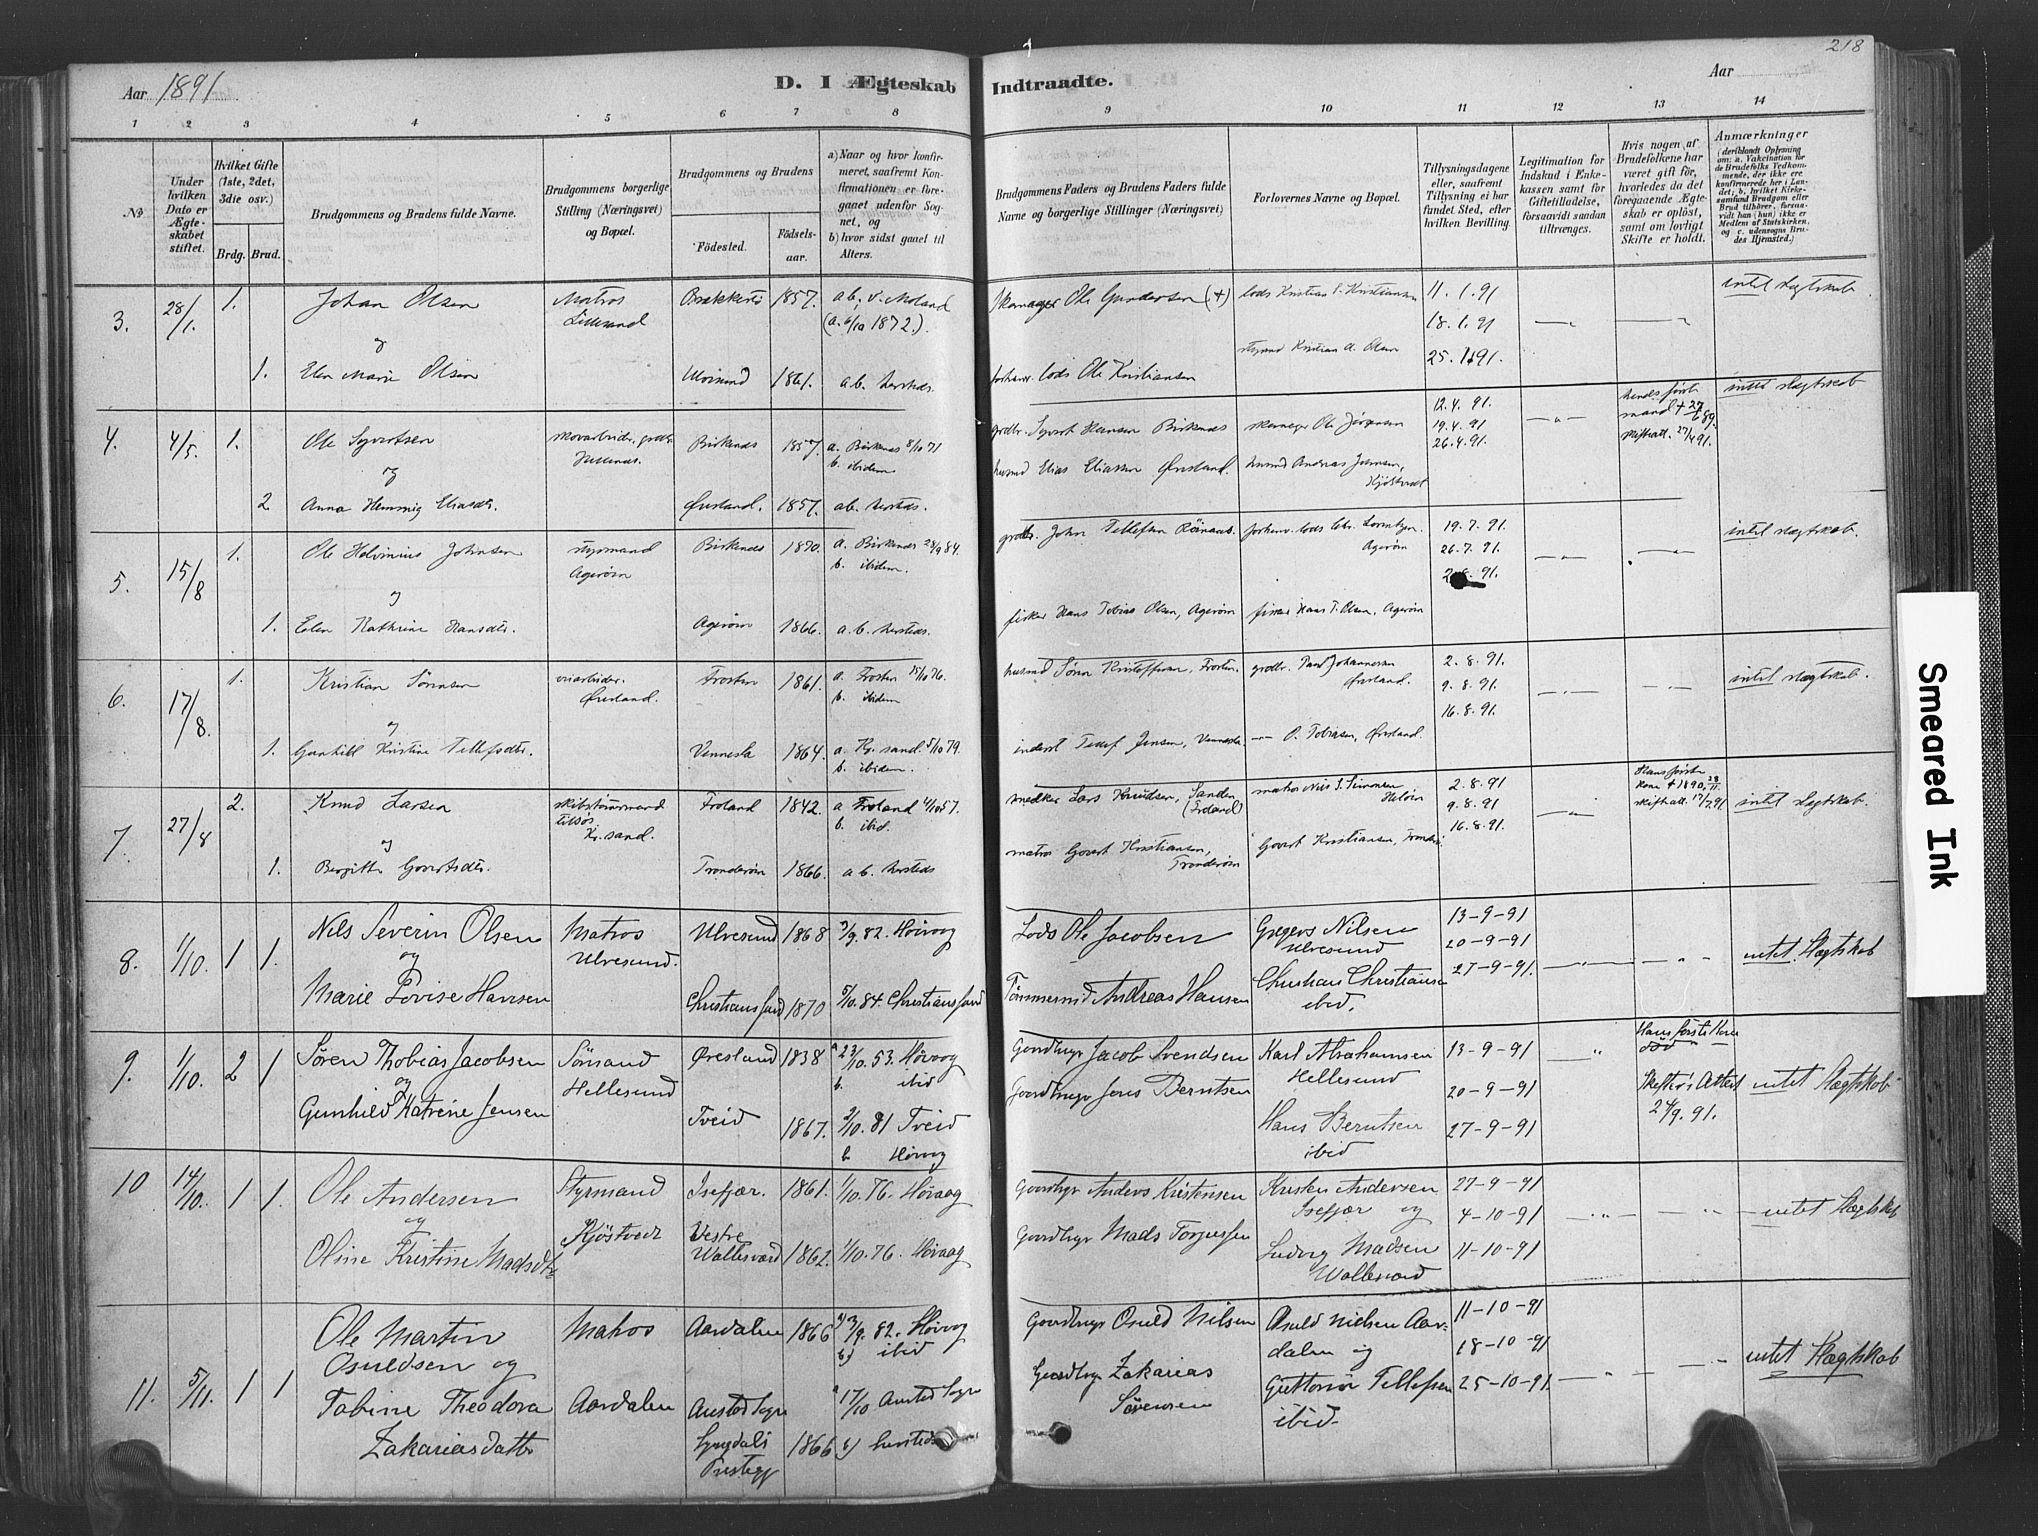 218
Aar 1891
D. I Ægteskab Indtraadte.
Aar
1 2 3 4 5 6 7 8 9 10 11 12 13 14
No
Under hvilken Dato er Ægteskabet stiftet.
Hvilket Gifte (1ste, 2det, 3die osv.)
Brdg. Brud.
Brudgommens og Brudens fulde Navne.
Brudgommens borgerlige Stilling (Næringsvei) og Bopæl.
Brudgommens og Brudens
Födested.
Födselsaar.
a) Naar og hvor konfirmeret, saafremt Konfirmationen er foregaaet udenfor Sognet, og
b) hvor sidst gaaet til Alters.
Brudgommens Faders og Brudens Faders fulde Navne og borgerlige Stillinger (Næringsvei)
Forlovernes Navne og Bopæl.
Tillysningsdagene eller, saafremt Tillysning ei har fundet Sted, efter hvilken Bevilling.
Legitimation for Indskud i Enkekassen samt for Giftetilladelse, forsaavidt saadan tiltrænges.
Hvis nogen af Brudefolkene har været gift før, hvorledes da det foregaaende Ægteskab er opløst, samt om lovligt Skifte er holdt.
Anmærkninger
(deriblandt Oplysning om: a. Vakcination for de Brudefolks Vedkommende, der ikke ere konfirmerede her i Landet; b. hvilket Kirkesamfund Brudgom eller Brud tilhører, forsaavidt han (hun) ikke er Medlem af Statskirken, og c. udensogns Brudes Hjemsted.)
3. 28/1. 1. Johan Olsen Matros Lillesand 1857. a.b. v. Moland (a. 6/10 1872.) Ole Gundersen (+) lods Kristian S. Kristiansen 11.1.91 intet slægtskab.
og 18.1.91
1. Elen Marie Olsen 1861. a.b. hersteds. forhenv. lods Ole Kristiansen styrmd Kristian A. Olsen 25.1.91.
4. 4/5. 1. Ole Syvertsen skovarbeider, grdbr. Birkenes 1857. a. Birkenes 8/10 71 b. ibidem grdbr. Syvert Hansen Birkenes skomager Ole Jørgensen 12.4.91. 19.4.91 26.4.91. hendes første mand + skiftatt. 27/4 91. intet slægtskab
og
2 Anna Hemmig Eliasdtr. Øvesland. 1857. ab. hersteds. husmd Elias Eliassen Øvesland. husmd Andreas Jensen, Kjøstvedt
5. 15/8 1. Ole Helvinius Johnsen styrmand Agerøen Birkenes 1870. a. Birkenes 28/9 84. b. ibidem. grdbr. John Tellefsen forhenv. lods Chr. Lorentzen Agerøen 19.7.91. 26.7.91. 2.8.91. intet slægtskab.
og
1. Elen Kathrine Hansdtr. Agerøen 1866. a.b. hersteds. fisker Hans Tobias Olsen, Agerøen fisker Hans T. Olsen, Agerøen
6. 17/8. 1. Kristian Sørensen Øvesland. Frosten 1861. a. Frosten 15/10 76. b. ibidem husmd Søren Kristoffersen, Frosten. grdbr. Johannesen Øvesland. 2.8.91. 9.8.91. 16.8.91. intet slægtskab.
og
1. Gunhild Kristine Tellefsdtr. Vennesla 1864. a. Kr.sand 5/10 79. b. ibidem. inderst Tellef Jensen, Vennesla O. Tobiasen, Øvesland.
7. 27/8 2. Knud Larsen skibstømmermand tilsøs Kr.sand. Froland 1842. a Froland 4/10 57. b. ibid. snedker Lars Knudsen, Sanden (Froland) matros Nils S. Simonsen 2.8.91 9.8.91 16.8.91. Hans første kone + 1890 28/11. skiftatt. 17/7 91 intet slægtskab.
og
1. Bergitte Govertsdtr. Trønderøen 1866. a b. hersteds matros Govert Kristiansen, Trønderøen Govert Kristiansen,
8. 1/10. 1 1. Nils Severin Olsen Matros Ulvesund 1868 3/9. 82. Høivaag Lods Ole Jacobsen Gregers Nilsen Ulvesund 13-9-91 intet Slægtskab
og Ulvesund. 20-9-91
Marie Lovise Hansen Christianssand 1870 5/10. 84. Christianssand Tømmermd Andreas Hansen Christian Christiansen ibid. 27-9-91.
9. 1/10. 2 1 Søren Thobias Jacobsen Sømand Øvesland 1838 a 23/10. 53. Høivaag b. ibid Gaardbrgr Jacob Svendsen Karl Abrahamsen Hellesund 13-9-91 Hans første Kone død intet Slægtskab
og Hellesund 20-9-91 Skifter's Attest 24/9. 91.
Gunhild Katrine Jensen Tveid 1867. 2/10. 81 Tveid b Høivaag Gaardbrgr Jens Berntsen Hans Berntsen ibid 27-9-91
10 14/10. 1 1. Ole Andersen Styrmand Isefjær. 1861. 1/10. 76. Høivaag Gaardbgr Anders Kristensen Kristen Andersen Isefjær og 27-9-91 intet Slægtskab
og Kjöstvedt 4-10-91
Oline Kristine Madsdtr Vestre Wallesverd 1862. 1/10. 76. Høivaag Gaardbgr Mads Torjussen Ludvig Madsen Wallesverd 11-10-91
11. 5/11. 1 1 Ole Martin Osuldsen og Matros Aardalen 1866 a) 3/9. 82. Høivaag b) ibid Gaardbrgr Osuld Nilsen Osuld Nielsen Aardalen og 11-10-91 18-10-91 intet Slægtskab
Tobine Theodora Zakariasdatter Aardalen Austad Sogn Lyngdals Prestegj 1866 a 17/10 Austad Sogn b) hersteds Gaardbrgr Zakarias Sørensen Tellefsen ibid. 25-10-91.
Smeared Ink